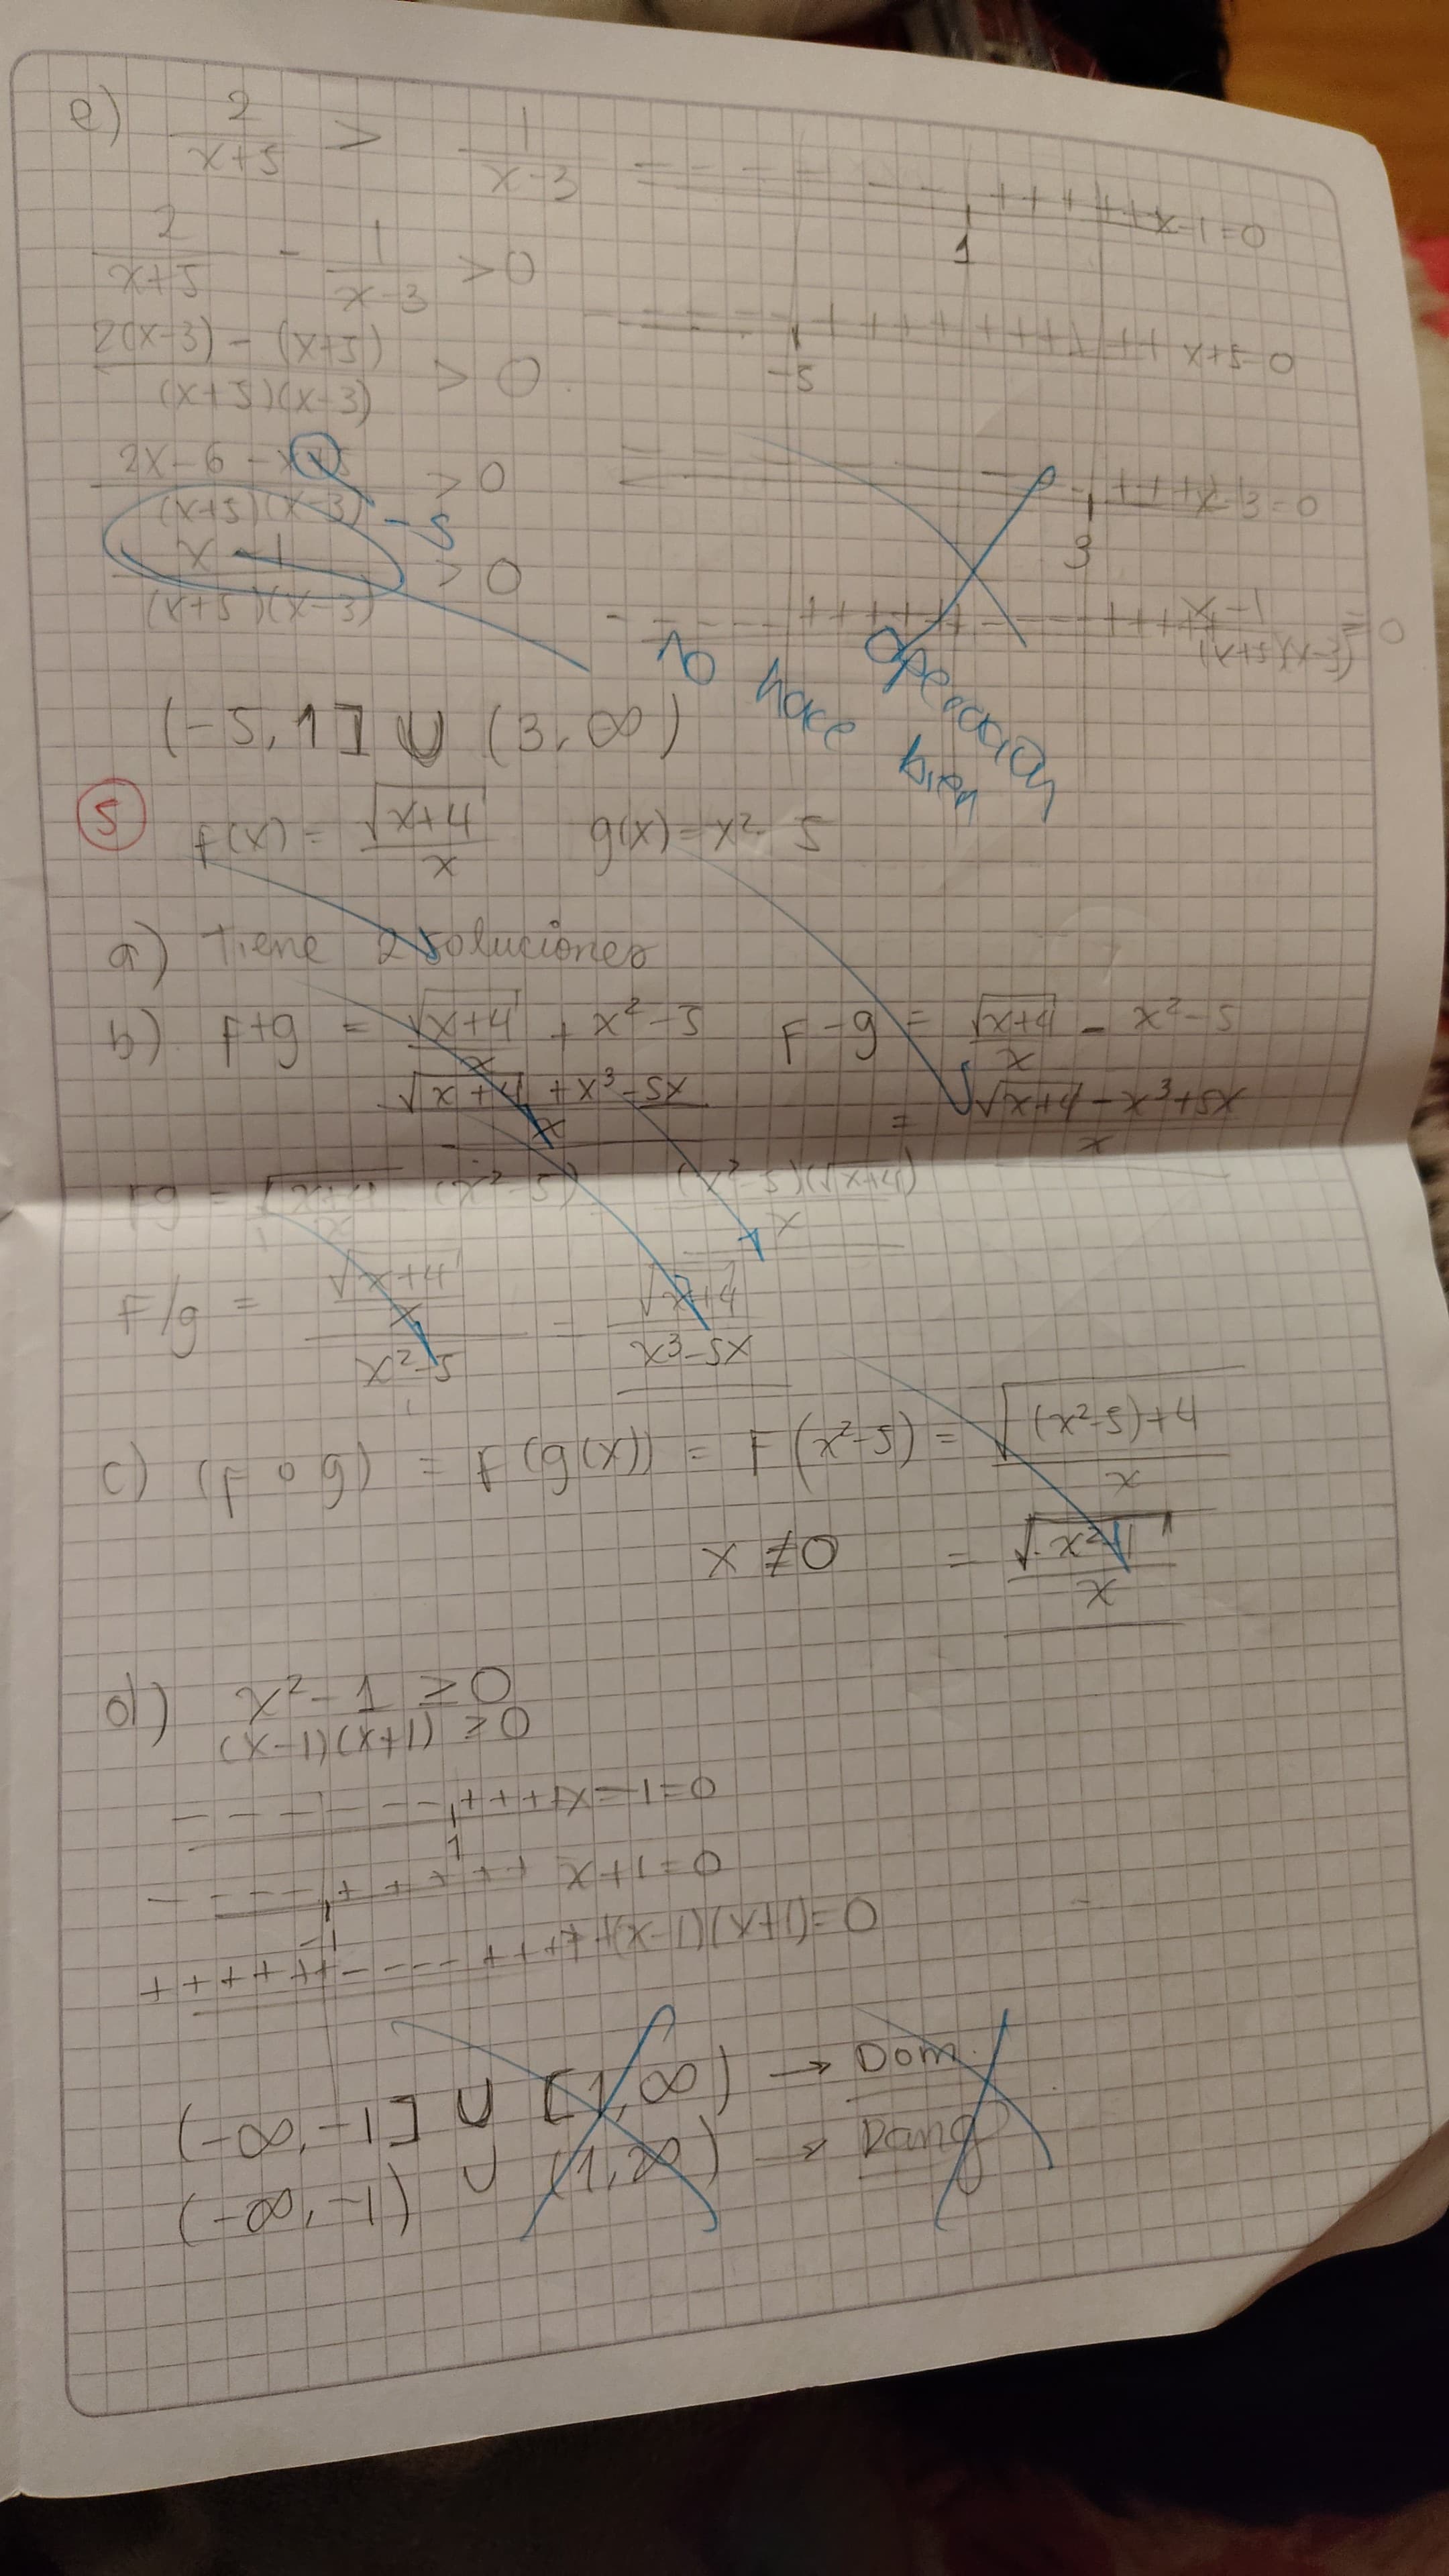 e) 2/(x+5) > 1/(x-3)
- - - - - - - + + + + + + x-1=0
1
2/(x+5) - 1/(x-3) > 0
- - - - - - + + + + + + + + + + x+5=0
-5
(2(x-3) - (x+5))/((x+5)(x-3)) > 0
(2x-6-x+5)/((x+5)(x-3)) > 0
-5
- - - - - + + + + x-3=0
3
(x-1)/((x+5)(x-3)) > 0
- - - - - - + + + + + + - - - - + + + + + (x-1)/((x+5)(x-3)) = 0
No hace bien operación
(-5, 1] ∪ (3, ∞)
5 f(x) = √(x+4)/x g(x) = x² - 5
a) Tiene 2 soluciones
b) F+g = √(x+4)/x + x² - 5 F-g = √(x+4)/x - x² - 5
(√(x+4) + x³ - 5x)/x = (√(x+4) - x³ + 5x)/x
Fg = √(x+4)/x (x²-5)/1 (x²-5)(√(x+4))/x
F/g = (√(x+4)/x)/((x²-5)/1) = √(x+4)/(x³-5x)
c) (F o g) = F(g(x)) = F(x²-5) = √((x²-5)+4)/x
x ≠ 0 = √(x²-1)/x
d) x² - 1 ≥ 0
(x-1)(x+1) ≥ 0
- - - - - - - + + + + x-1=0
1
- - - - - + + + + + + x+1=0
-1
+ + + + + + + - - - - + + + + + (x-1)(x+1)=0
(-∞, -1] ∪ [1, ∞) → Dom.
(-∞, -1) ∪ (1, ∞) → Rang